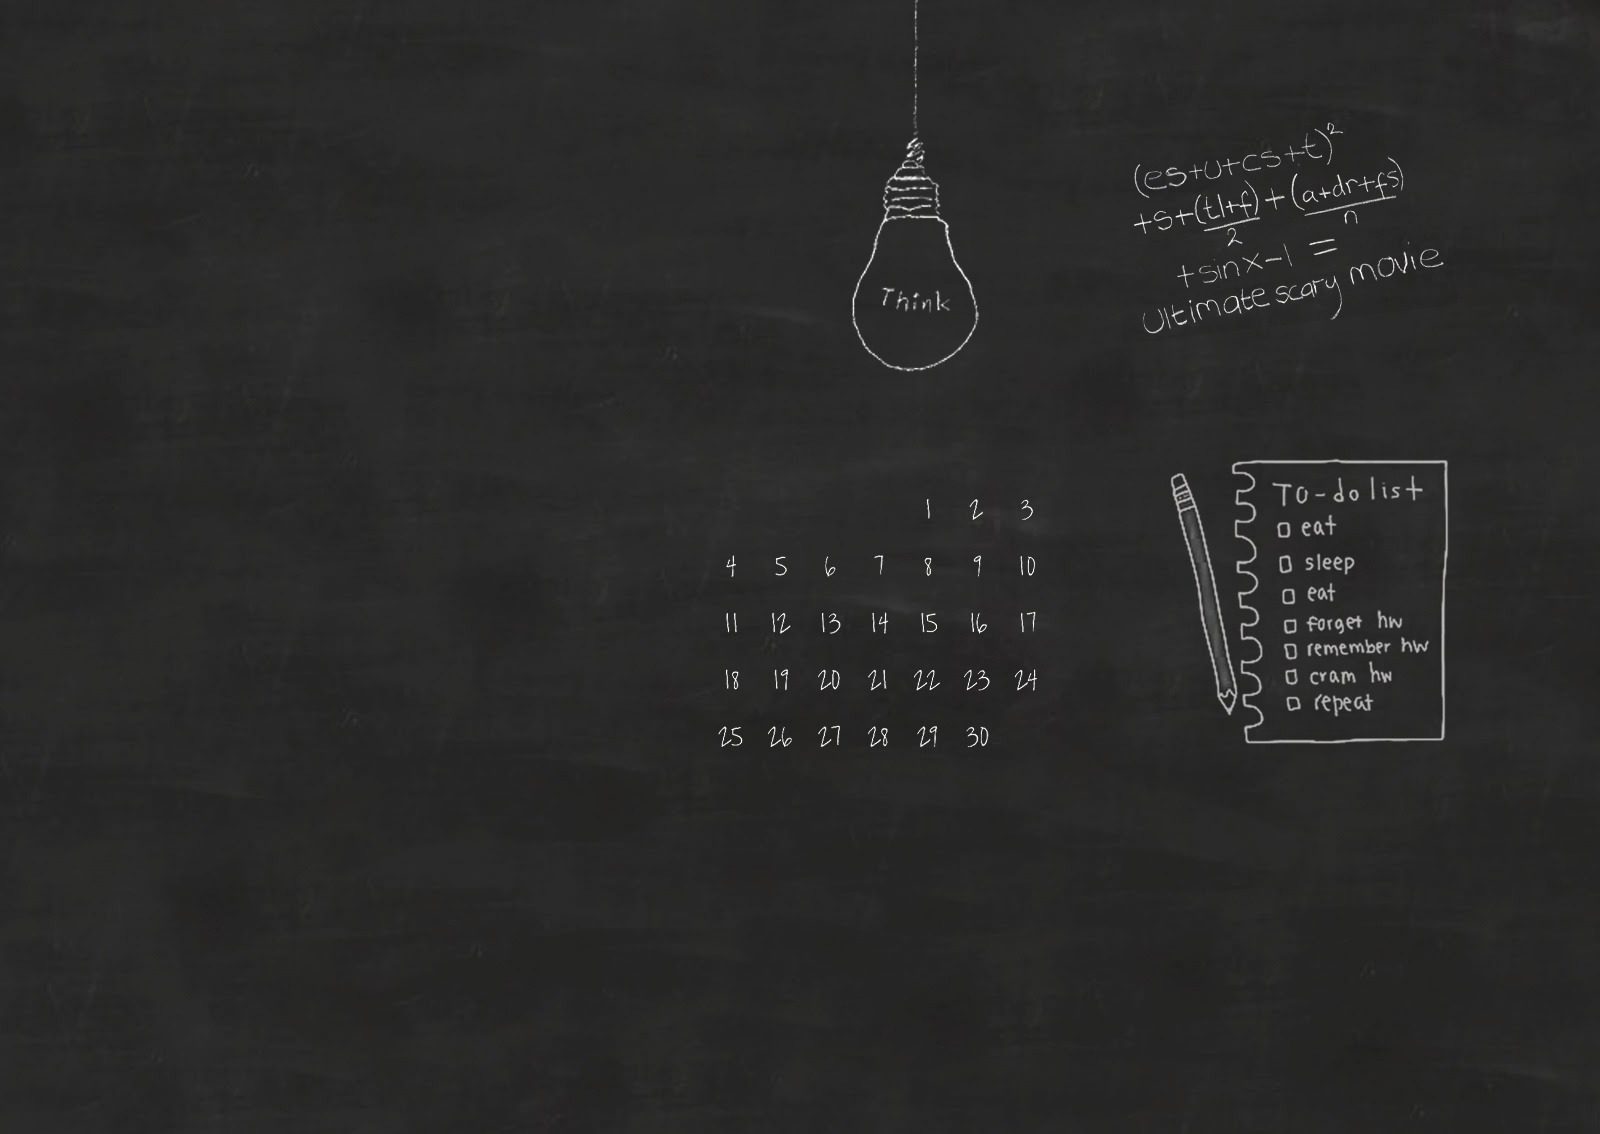 Think
(es+u+cs+t)²
+s+(tl+f)/2+(a+dr+fs)/n
+sinx-1=
ultimate scary movie
1 2 3
4 5 6 7 8 9 10
11 12 13 14 15 16 17
18 19 20 21 22 23 24
25 26 27 28 29 30
To-do list
eat
sleep
eat
forget hw
remember hw
cram hw
repeat